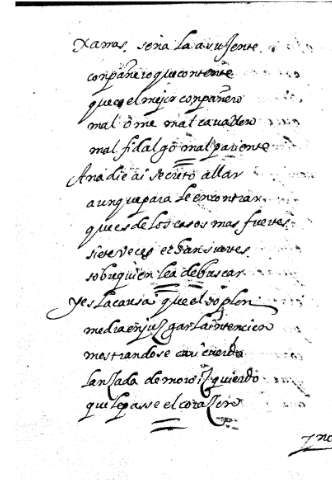 Xamas sera la ausente
conpañero que contente
que es el mejor conpañero
mal ome mal cavallero
mal fidalgo mal pariente
A nadie ai secreto allar
aunque para le encontrar
que es de los casos mas fuertes
siete veces et dan suertes
sobre quien lea de buscar
Yes la causa que el soplon
media en juzgar la intencion
mostrandose car cuerdo
lanzada de moro izquierdo
que le passe el corazon